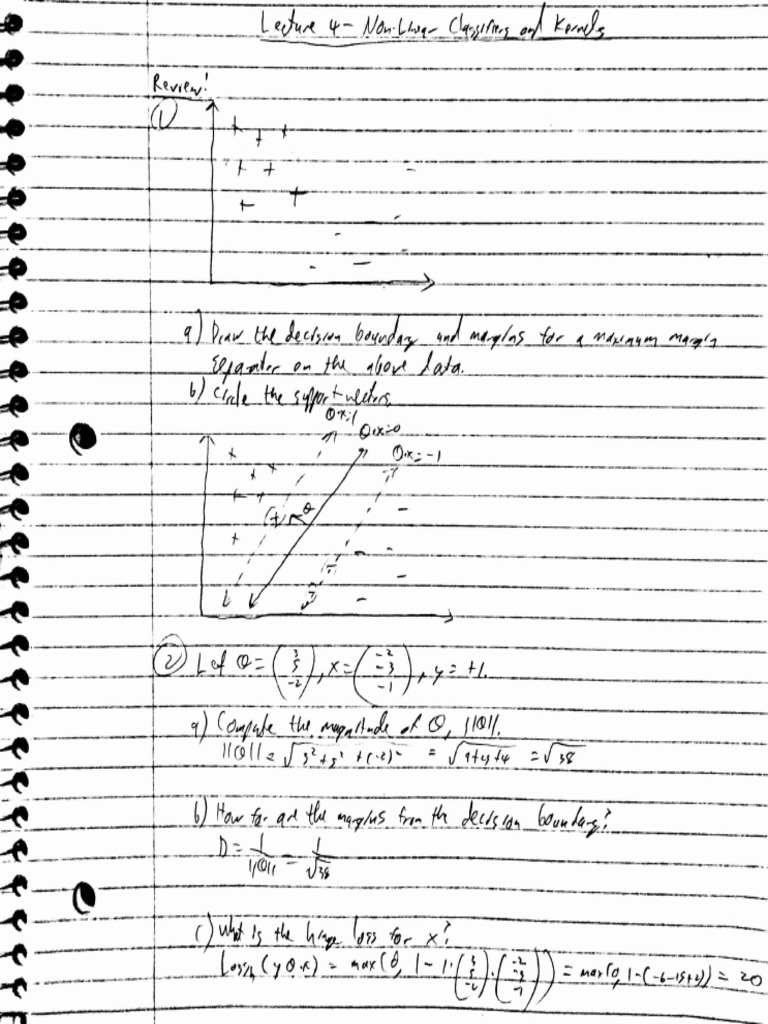 Lecture 4 - Non-Linear Classifiers and Kernels
Review!
①
a) Draw the decision boundary and margins for a maximum margin
separator on the above data.
b) Circle the support vectors
θ·x=1
θ·x=0
θ·x=-1
θ
② Let θ = (3 5 -2), x = (-2 -3 -1), y = +1.
a) Compute the magnitude of θ, ||θ||.
||θ|| = √3²+5²+(-2)² = √9+25+4 = √38
b) How far are the margins from the decision boundary?
D = 1/||θ|| = 1/√38
c) What is the hinge loss for x?
Loss_h(yθ·x) = max(0, 1-1·(3 5 -2)·(-2 -3 -1)) = max(0, 1-(-6-15+2)) = 20